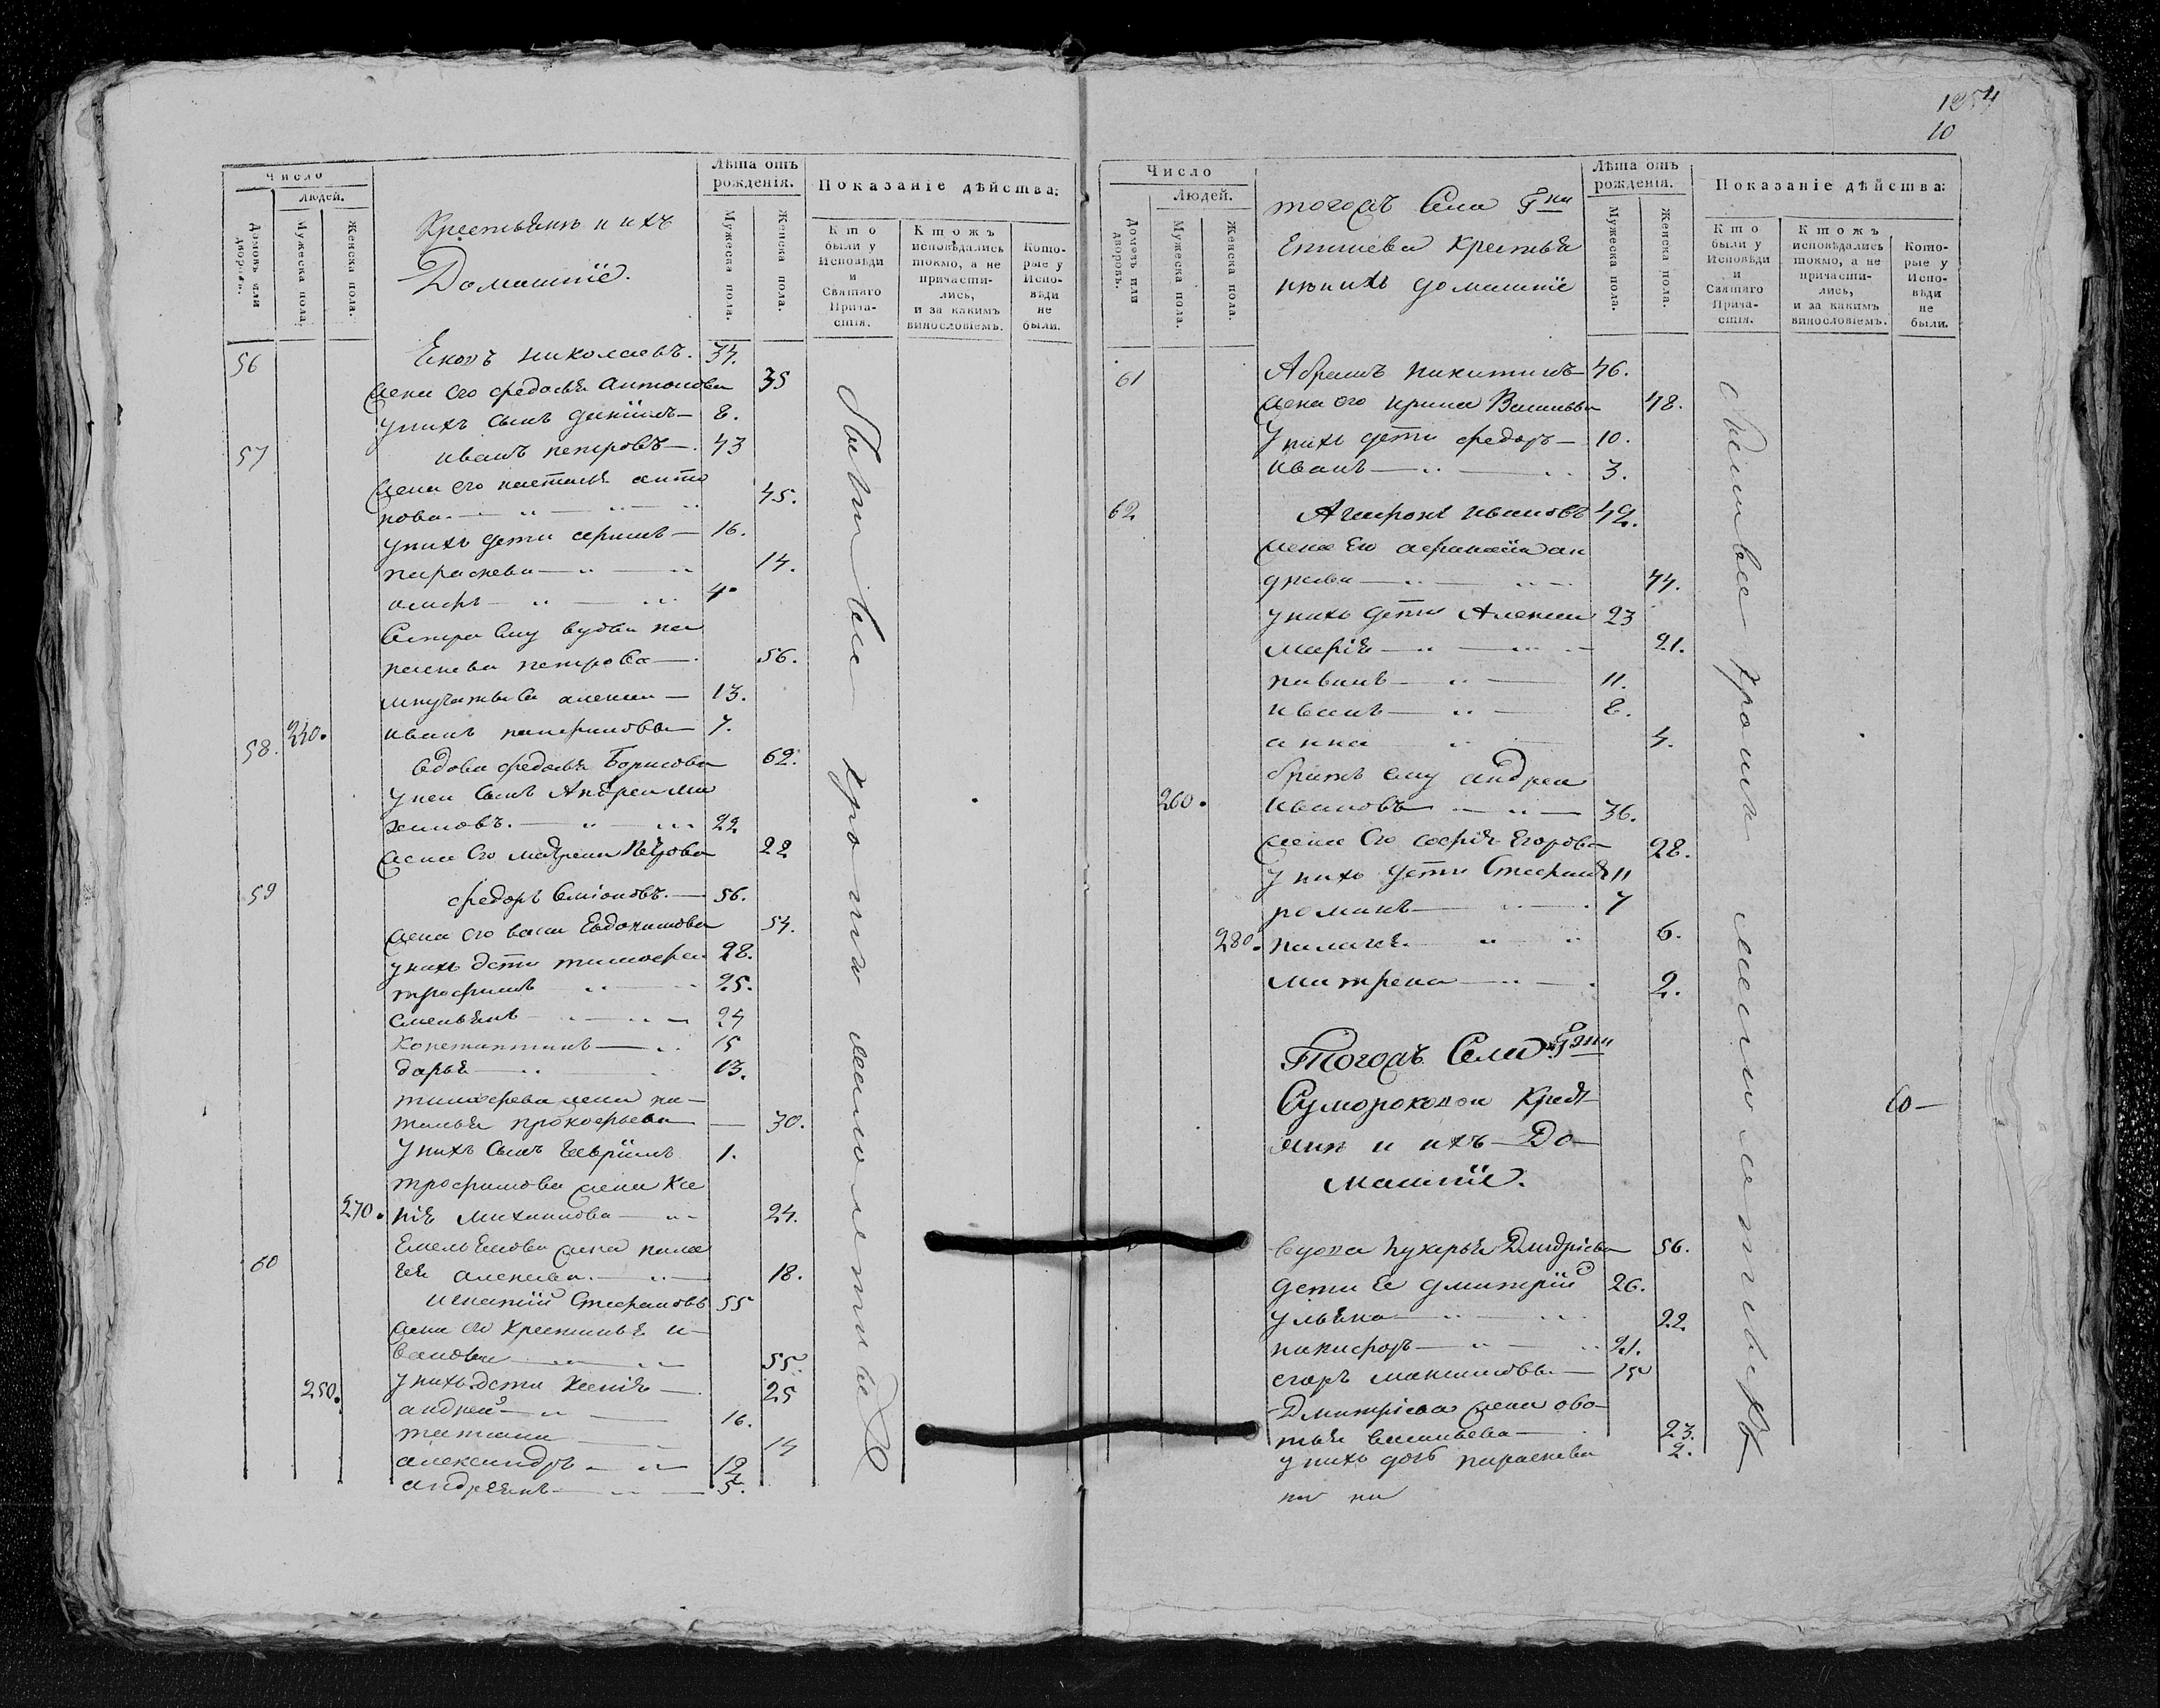 Число
Людей.
Домовъ или дворовъ.
Мужеска пола.
Женска пола.
Крестьянъ и ихъ
Домашніе.
Лѣта отъ рожденія.
Мужеска пола.
Женска пола.
Показаніе дѣйства:
Кто были у Исповѣди и Святаго Причастія.
Ктожъ исповѣдались токмо, а не причастились, и за какимъ винословіемъ.
Которые у Исповѣди не были.
56 николаевъ. 34.
жена его федосья антонова 35
у нихъ сынъ даніилъ 8.
57 иванъ петровъ 43
жена его наталья анто
нова 45.
у нихъ дети 16.
параскева 14.
осипъ 4
сестра ему вдова па
раскева петрова 56.
алексеи 13.
240. иванъ 7.
58. вдова федосья Борисова 62.
у неи сынъ Андреи ма
22
жена его матрена Петрова 22
59 федоръ 56.
жена его Евдокимова 54.
у нихъ дети тимофеи 28.
трофимъ 25.
емельянъ 24
константинъ 15
дарья 13.
тимофеева жена на
талья прокофьева 30.
у нихъ сынъ Гавріилъ 1.
трофимова жена Ксе
270. нія Михаилова 24.
Емельянова жена пела
гея алексеева 18.
60 игнатіи Стефановъ 55
жена его Крестинья и
ванова 55.
250. у нихъ дети ксенія 25
андреи 16.
татиана 14
александръ 12
андреянъ 5.
были все кроме малолетныхъ
1254
10
Число
Людей.
Домовъ или дворовъ.
Мужеска пола.
Женска пола.
тогожъ Села Гжи
Епишева крестья
нъ и ихъ домашніе
Лѣта отъ рожденія.
Мужеска пола.
Женска пола.
Показаніе дѣйства:
Кто были у Исповѣди и Святаго Причастія.
Ктожъ исповѣдались токмо, а не причастились, и за какимъ винословіемъ.
Которые у Исповѣди не были.
61 Абрамъ никитинъ 46.
жена его ирина Васильева 48.
У нихъ дети федоръ 10.
иванъ 3.
62 ивановъ 42.
жена Его афанасія ан
дреева 44.
у нихъ дети Алексеи 23
марія 21.
11.
иванъ 8.
анна 4.
братъ ему андреи
260. ивановъ 36.
жена Его софія Егорова 28.
у нихъ дети Стефанъ 11
романъ 7
280. пелагея 6.
матрена 2.
Тогожъ Села Гжи
Сумороковои Крест
янъ и ихъ До
машніе.
60
вдова лукерья Дмитріева 56.
дети Ее дмитріи 26.
ульяна 22
никифоръ 21.
егоръ максимовъ 15
Дмитріева жена
васильева 23.
у нихъ дочь параскева 2.
были все кроме малолетныхъ